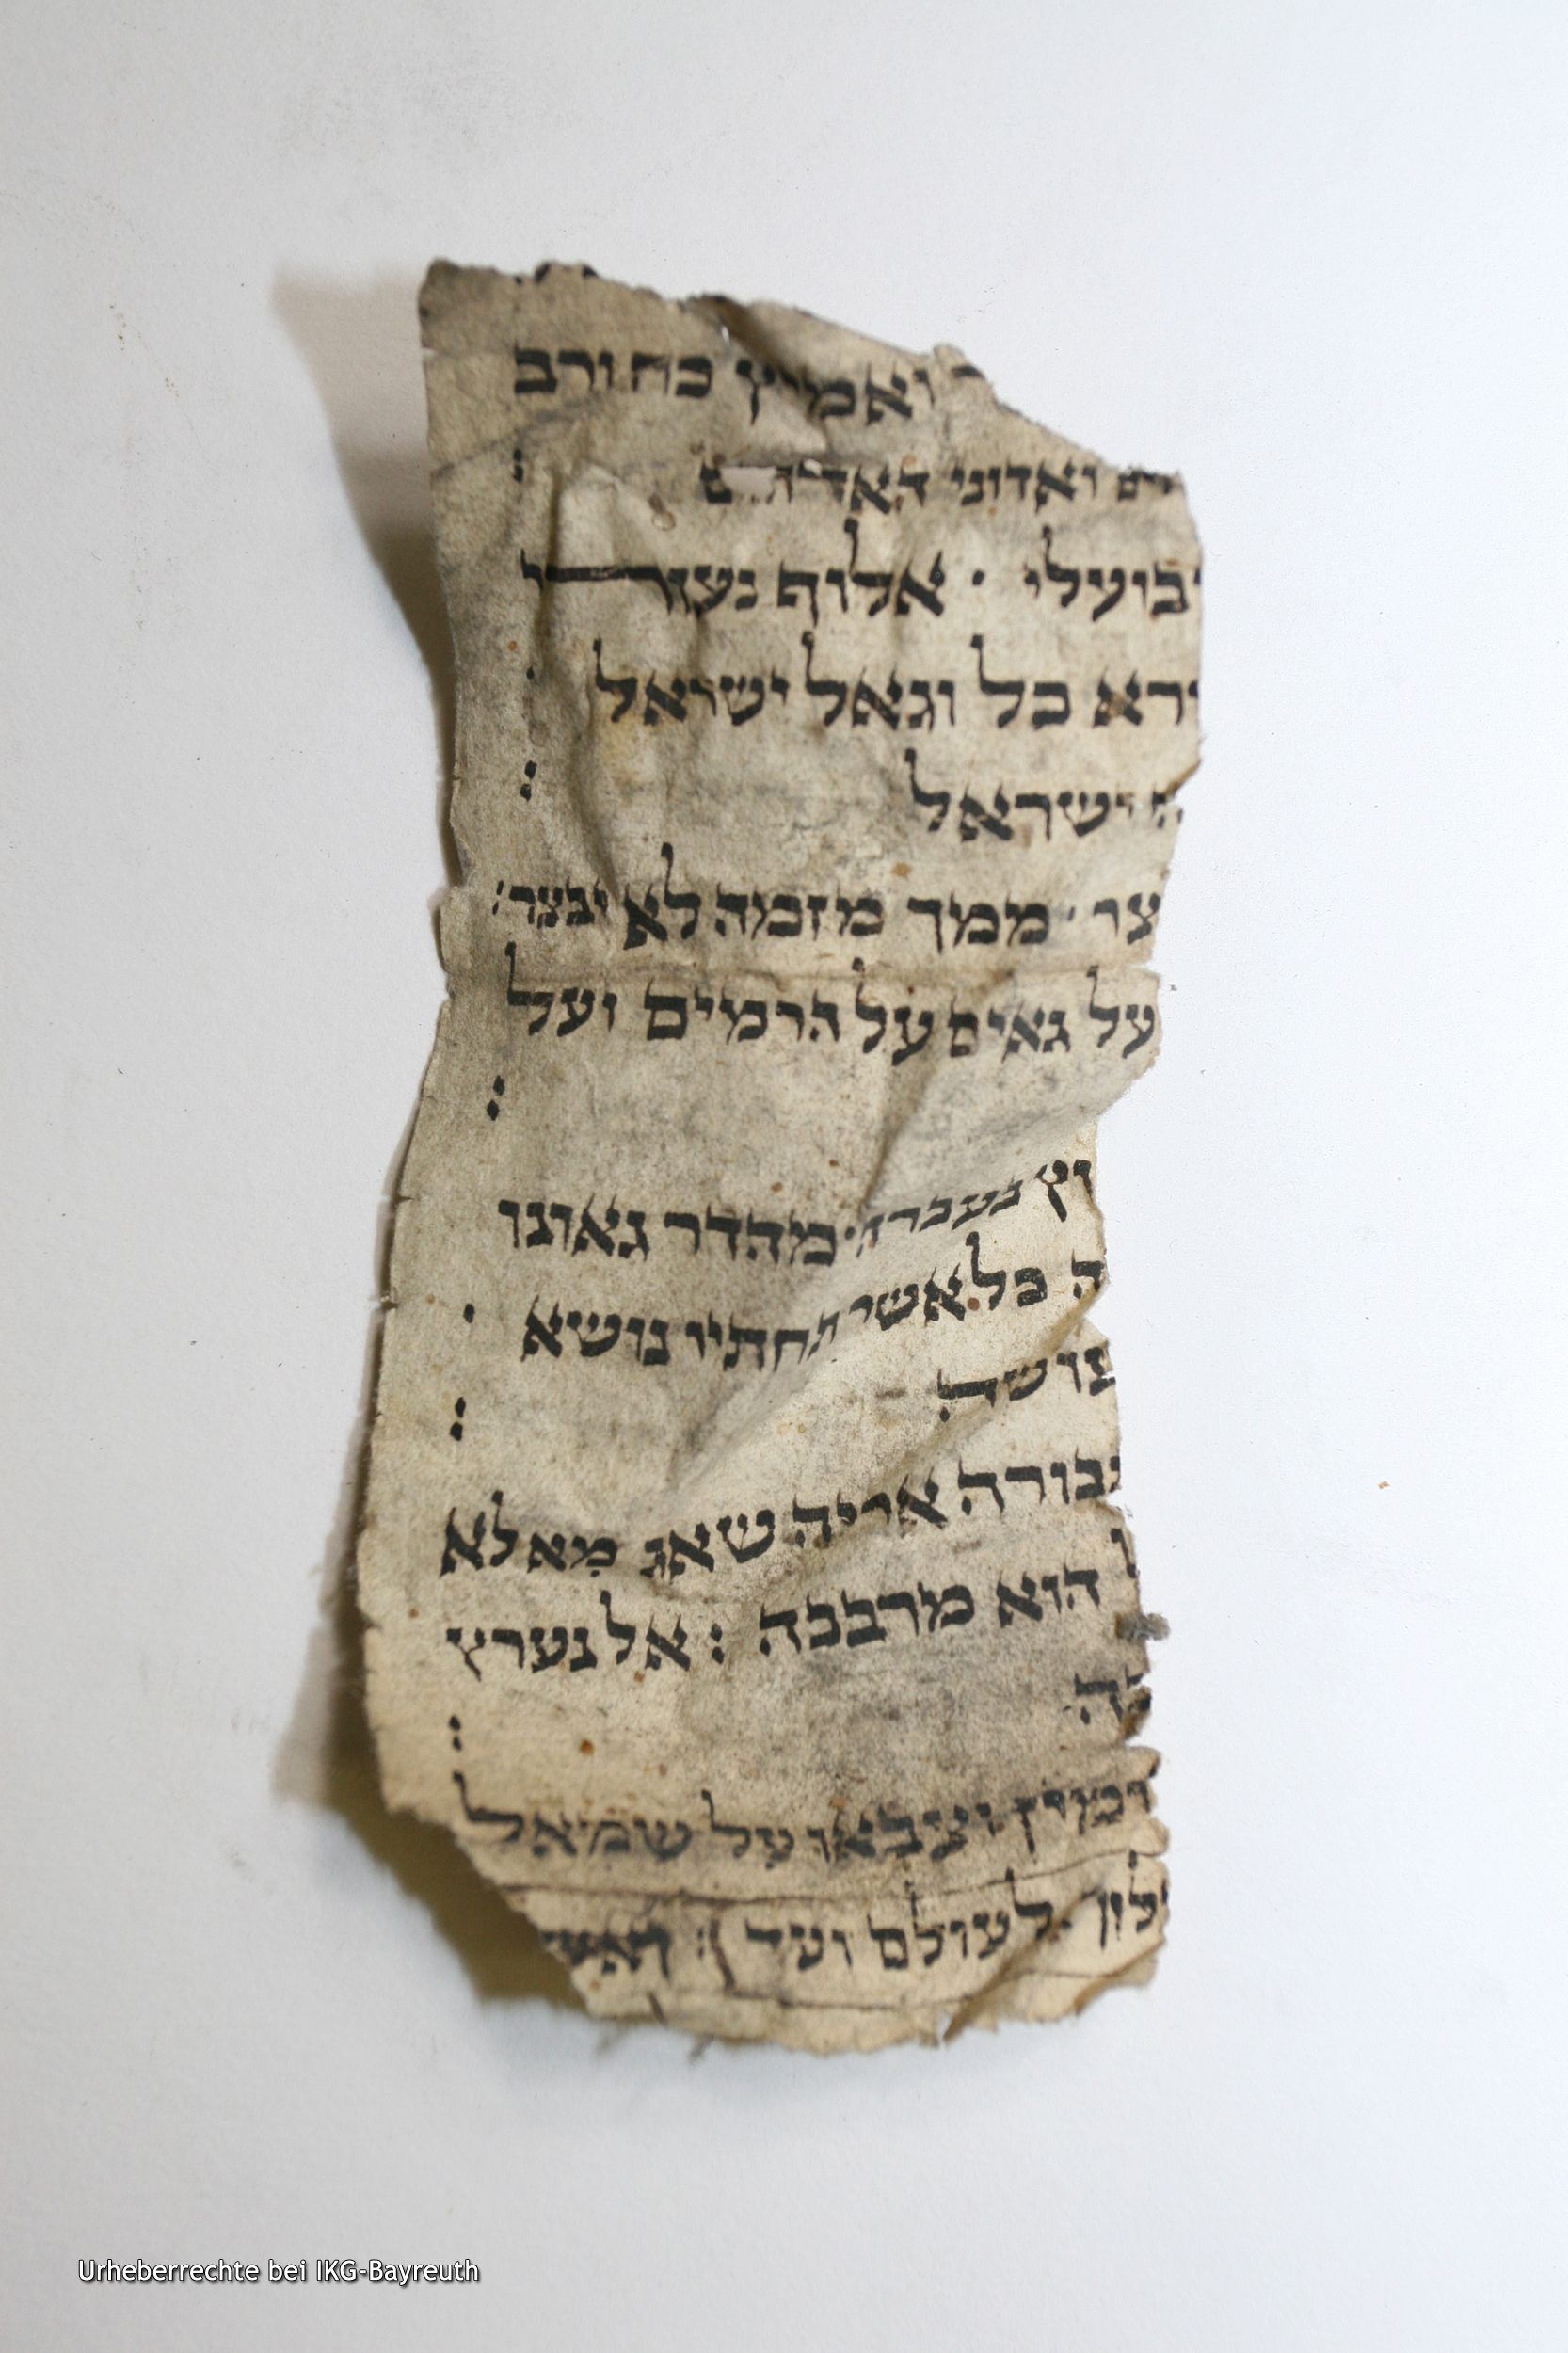 ואמיץ כח ורב
ואדוני האד
בועלי · אלוף נעורי
ירא כל וגאל ישראל
ישראל :
צר · ממך מזמה לא יבצר
על גאים על הרמים ועל
:
וץ בעברה · מהדר גאונו
ה כל אשר תחתיו נושא ·
:
בורה אריה שאג מא לא
הוא מרכבה : אל נערץ
:
וצבאו על שמאל
לעולם ועד
Urheberrechte bei IKG-Bayreuth